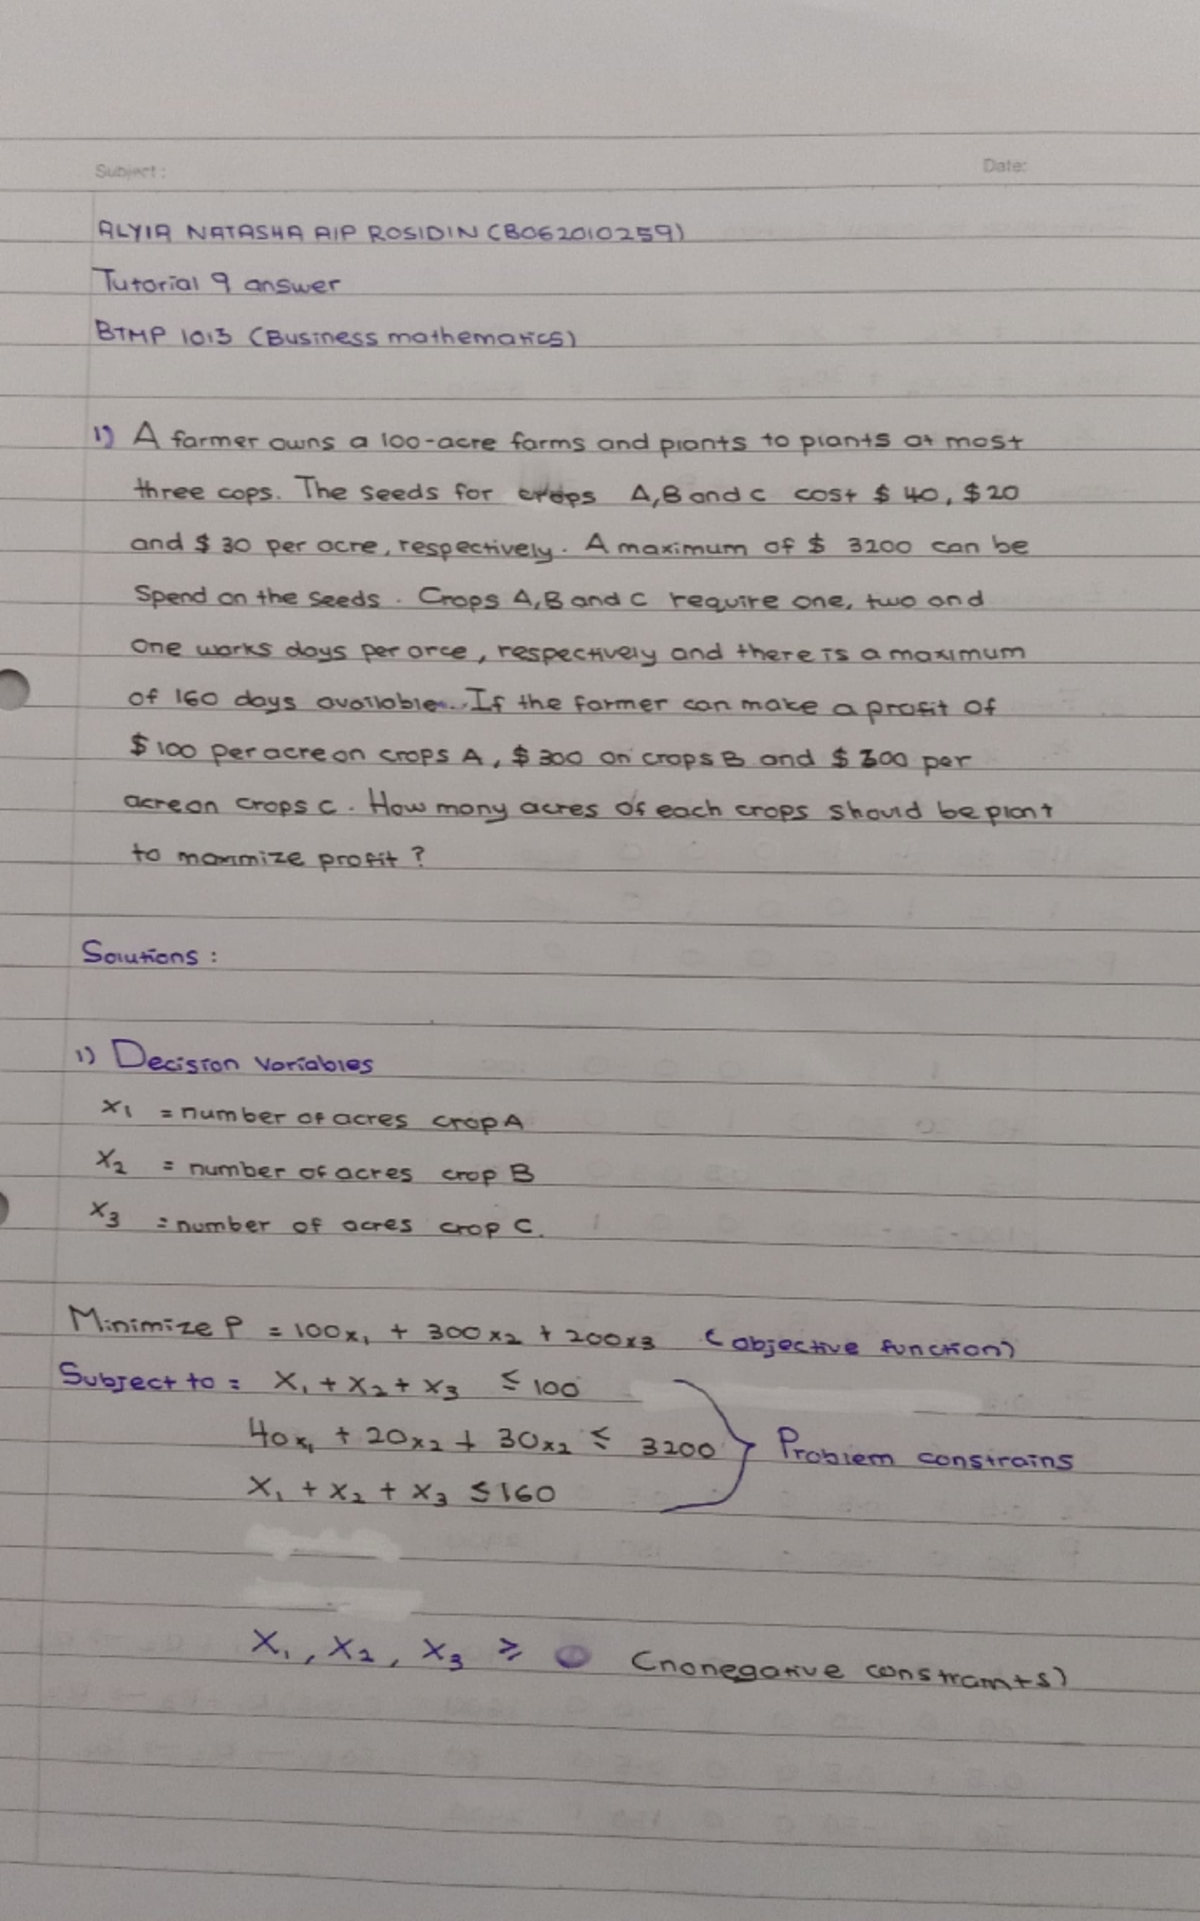 Subject:
Date:
ALYIA NATASHA AIP ROSIDIN (B062010259)
Tutorial 9 answer
BTMP 1013 (Business mathematics)
1) A farmer owns a 100-acre farms and plants to plants at most
three cops. The seeds for crops A,B and C cost $ 40, $20
and $ 30 per acre, respectively. A maximum of $ 3200 can be
Spend on the seeds. Crops A,B and C require one, two and
One works days per orce, respectively and there is a maximum
of 160 days available. If the farmer can make a profit of
$100 per acre on crops A, $300 on crops B and $ 300 per
acre on crops C. How many acres of each crops should be plant
to maxmize profit?
Solutions:
1) Decision Variables
x₁ = number of acres crop A
x₂ = number of acres crop B
x₃ = number of acres crop C.
Minimize P = 100x₁ + 300x₂ + 200x₃ (objective function)
Subject to: x₁ + x₂ + x₃ ≤ 100
40x₁ + 20x₂ + 30x₂ ≤ 3200 Problem constrains
x₁ + x₂ + x₃ ≤ 160
x₁, x₂, x₃ ≥ 0 (nonegative constraints)